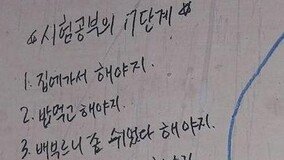 ☆시험공부의 17단계☆
1. 집에가서 해야지.
2. 밥먹고 해야지.
3. 배부르니 좀 쉬었다 해야지.